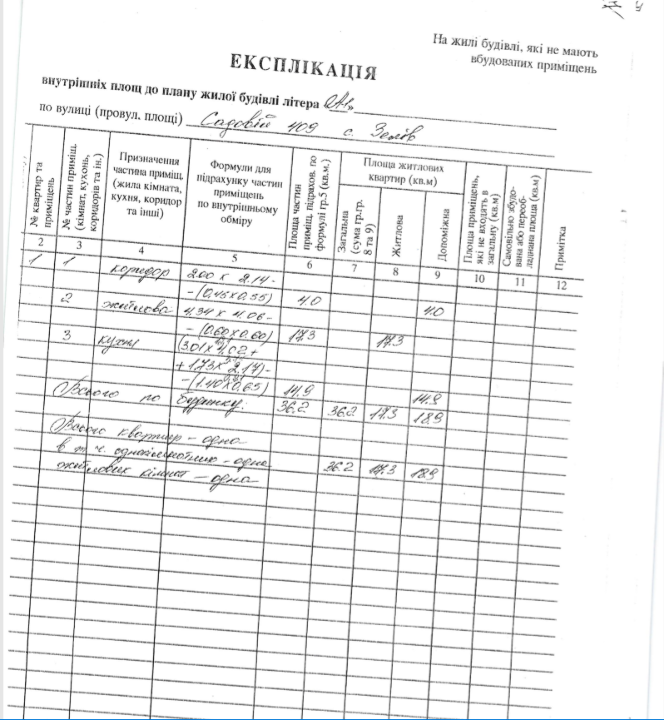 На жилі будівлі, які не мають
вбудованих приміщень
ЕКСПЛІКАЦІЯ
внутрішніх площ до плану жилої будівлі літера „А1"
по вулиці (провул. площі) Садовій 409 с.
№ квартир та приміщень
№ частин приміщ. (кімнат, кухонь, коридорів та ін.)
Призначення частина приміщ. (жила кімната, кухня, коридор та інші)
Формули для підрахунку частин приміщень по внутрішньому обміру
Площа частин приміщ, підрахов. по формулі гр.5 (кв.м.)
Площа житлових квартир (кв.м)
Загальна (сума гр.гр. 8 та 9)
Житлова
Допоміжна
Площа приміщень, які не входять в загальну (кв.м)
Самовільно збудована або переобладнана площа (кв.м)
Примітка
2 3 4 5 6 7 8 9 10 11 12
1 1 коридор 2.00 х 2.14 -
- (0,45х0.55) 4.0 4.0
2 житлова 4.34 х 4.06 -
- (0.60х0.60) 17.3 17.3
3 кухня (3.01х4.02 +
+ 1.73х2.17) -
- (1.40х0.65) 14.9 14.8
Всього по будинку: 36.2 36.2 17.3 18.9
Всього квартир - одна
в т.ч. однокімнатною - одна 36.2 17.3 18.9
житлових кімнат - одна